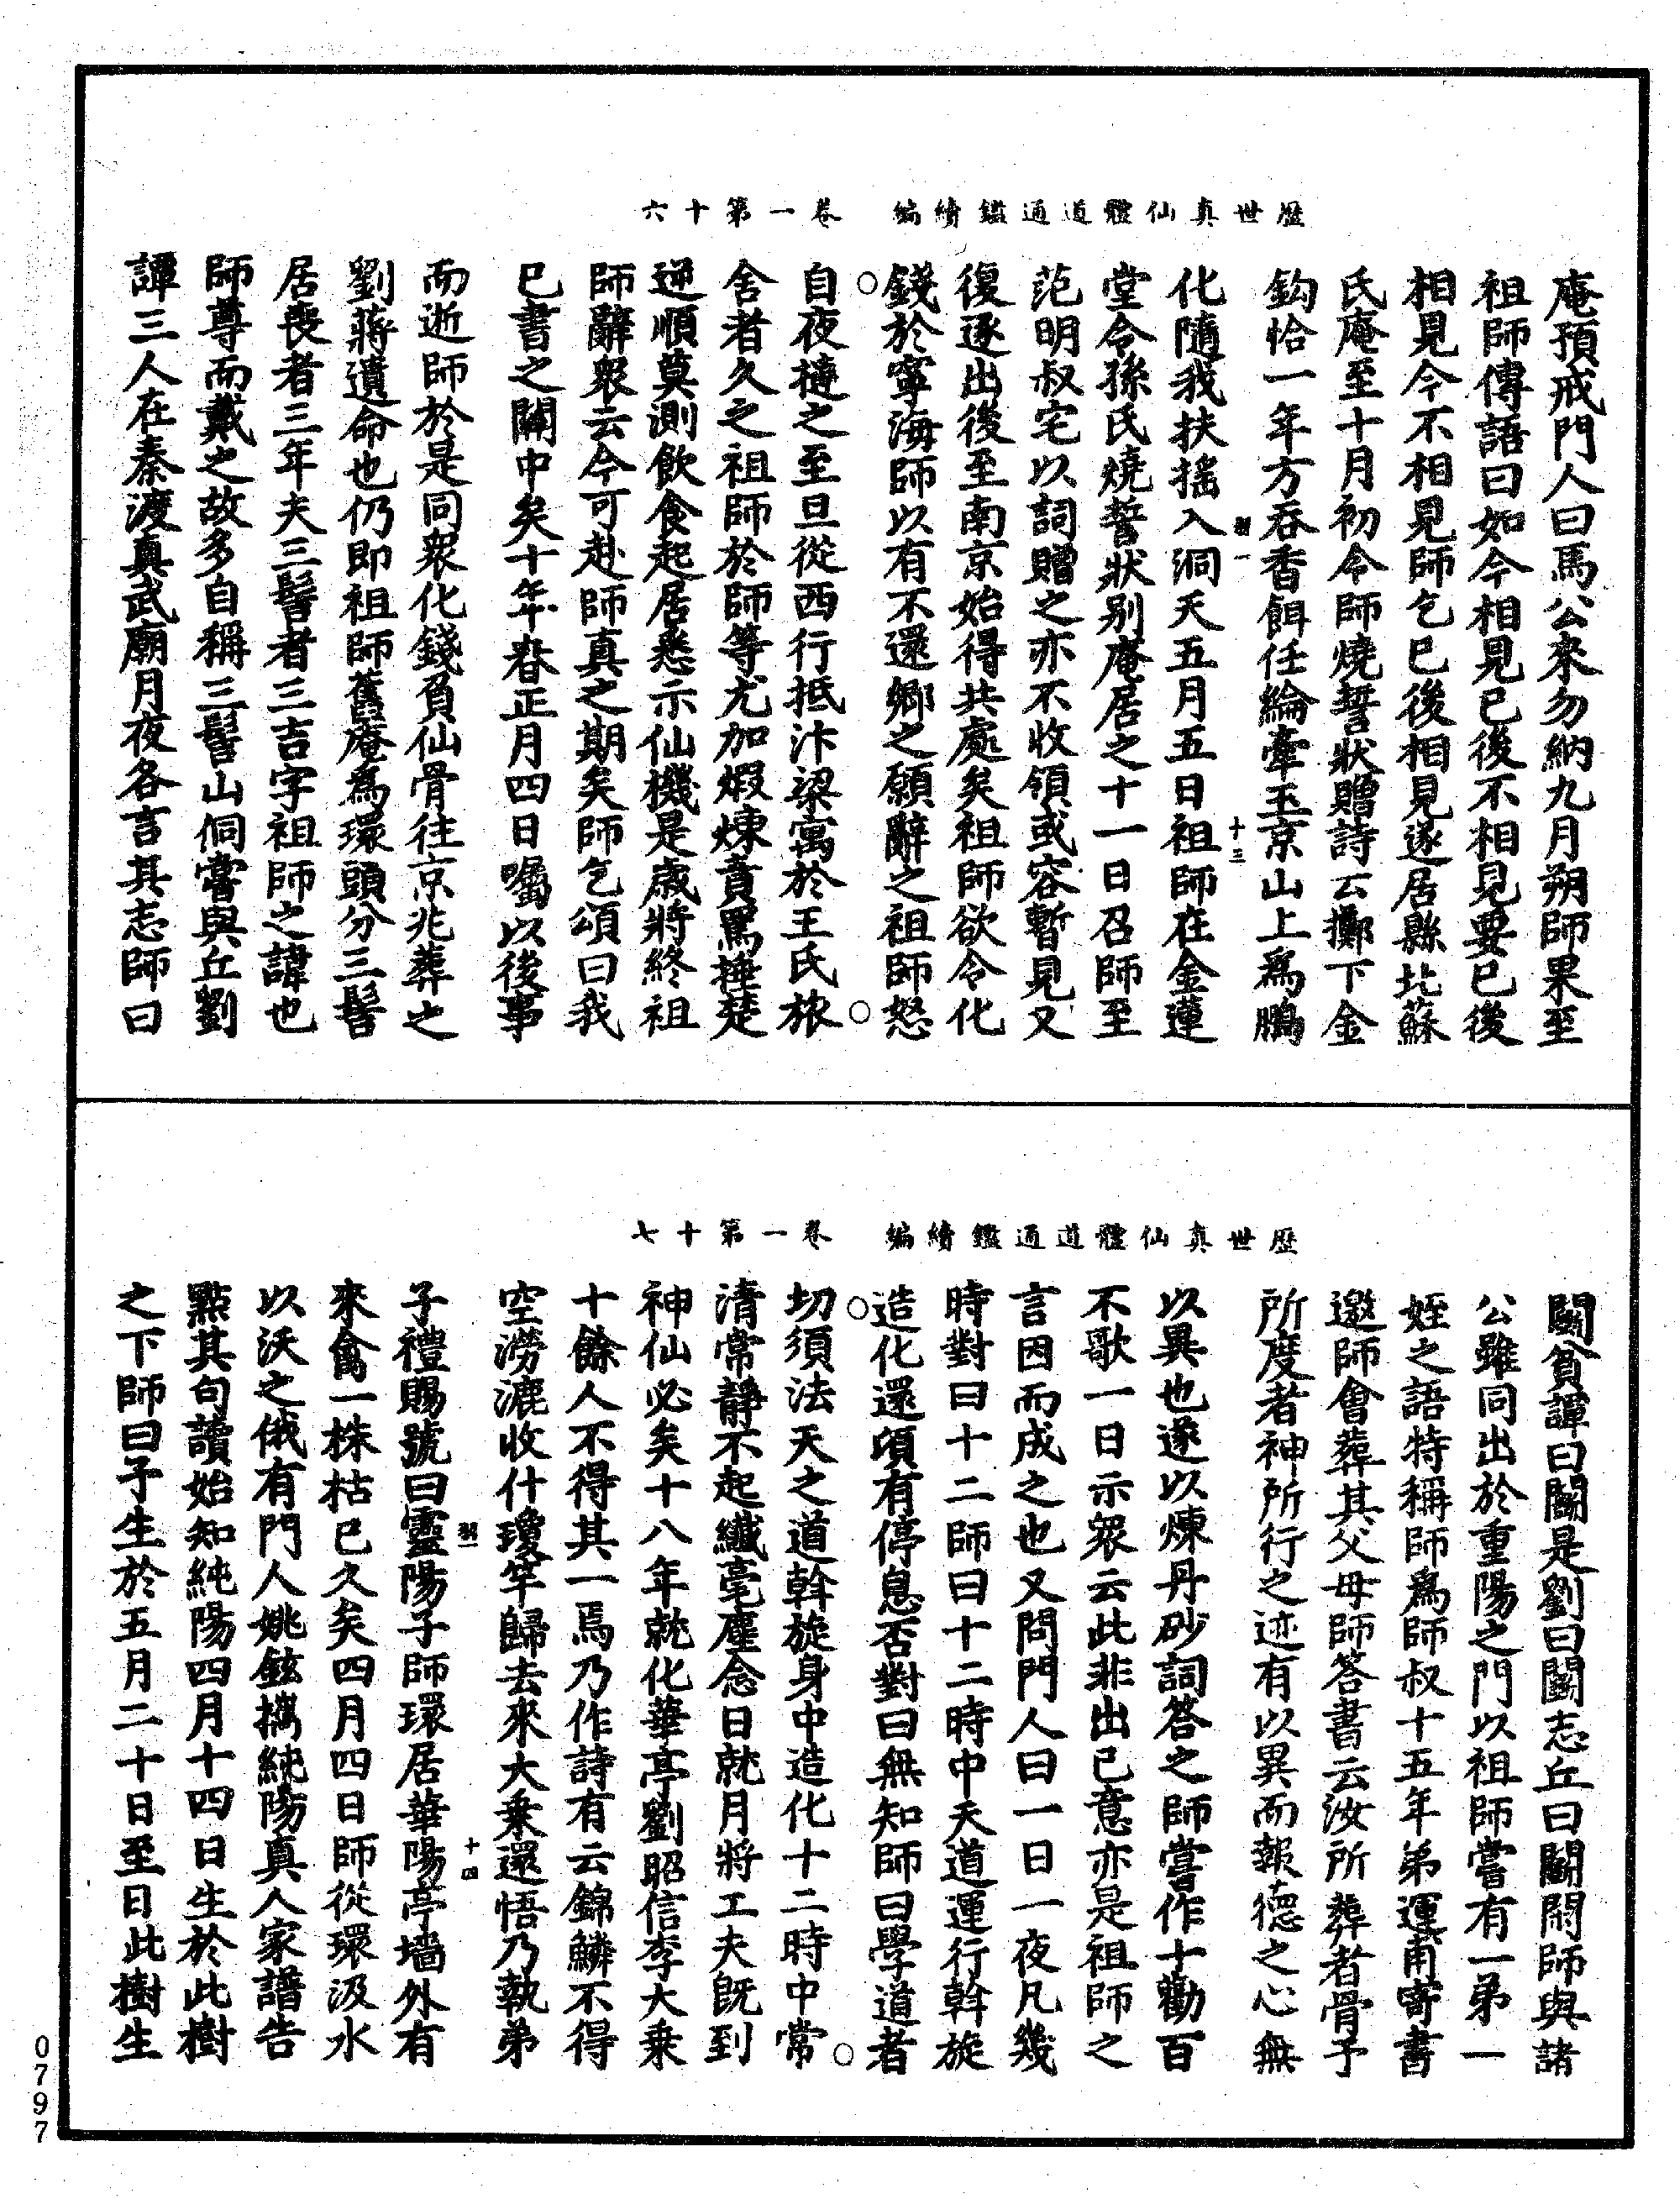 歷世真仙體道通鑑續編　卷一第十六
庵預戒門人曰馬公來勿納九月朔師果至
祖師傳語曰如今相見已後不相見要已後
相見今不相見師乞已後相見遂居縣北蘇
氏庵至十月初令師燒誓狀贈詩云擲下金
鈎恰一年方吞香餌任綸牽玉京山上為鵬
化隨我扶搖入洞天五月五日祖師在金蓮
堂令孫氏燒誓狀別庵居之十一日召師至
范明叔宅以詞贈之亦不收領或容暫見又
復逐出後至南京始得共處矣祖師欲令化
錢於寧海師以有不還鄉之願辭之祖師怒
自夜撻之至旦從西行抵汴梁寓於王氏旅
舍者久之祖師於師等尤加煅煉責罵捶楚
逆順莫測飲食起居悉示仙機是歲將終祖
師辭眾云今可赴師真之期矣師乞頌曰我
已書之關中矣十年春正月四日囑以後事
而逝師於是同眾化錢負仙骨往京兆葬之
劉蔣遺命也仍即祖師舊庵為環頭分三髻
居喪者三年夫三髻者三吉字祖師之諱也
師尊而戴之故多自稱三髻山侗嘗與丘劉
譚三人在秦渡真武廟月夜各言其志師曰
歷世真仙體道通鑑續編　卷一第十七
鬭貧譚曰鬭是劉曰鬭志丘曰鬭閑師與諸
公雖同出於重陽之門以祖師嘗有一弟一
姪之語特稱師為師叔十五年弟運甫寄書
邀師會葬其父母師答書云汝所葬者骨予
所度者神所行之迹有以異而報德之心無
以異也遂以煉丹砂詞答之師嘗作十勸百
不歌一日示眾云此非出已意亦是祖師之
言因而成之也又問門人曰一日一夜凡幾
時對曰十二師曰十二時中天道運行斡旋
造化還頃有停息否對曰無知師曰學道者
切須法天之道斡旋身中造化十二時中常
清常靜不起纖毫塵念日就月將工夫既到
神仙必矣十八年就化華亭劉昭信李大乘
十餘人不得其一焉乃作詩有云錦鱗不得
空澇漉收什瓊竿歸去來大乘還悟乃執弟
子禮賜號曰靈陽子師環居華陽亭墻外有
來禽一株枯已久矣四月四日師從環汲水
以沃之俄有門人姚鉉攜純陽真人家譜告
點其句讀始知純陽四月十四日生於此樹
之下師曰予生於五月二十日至日此樹生
十三
十四
0797